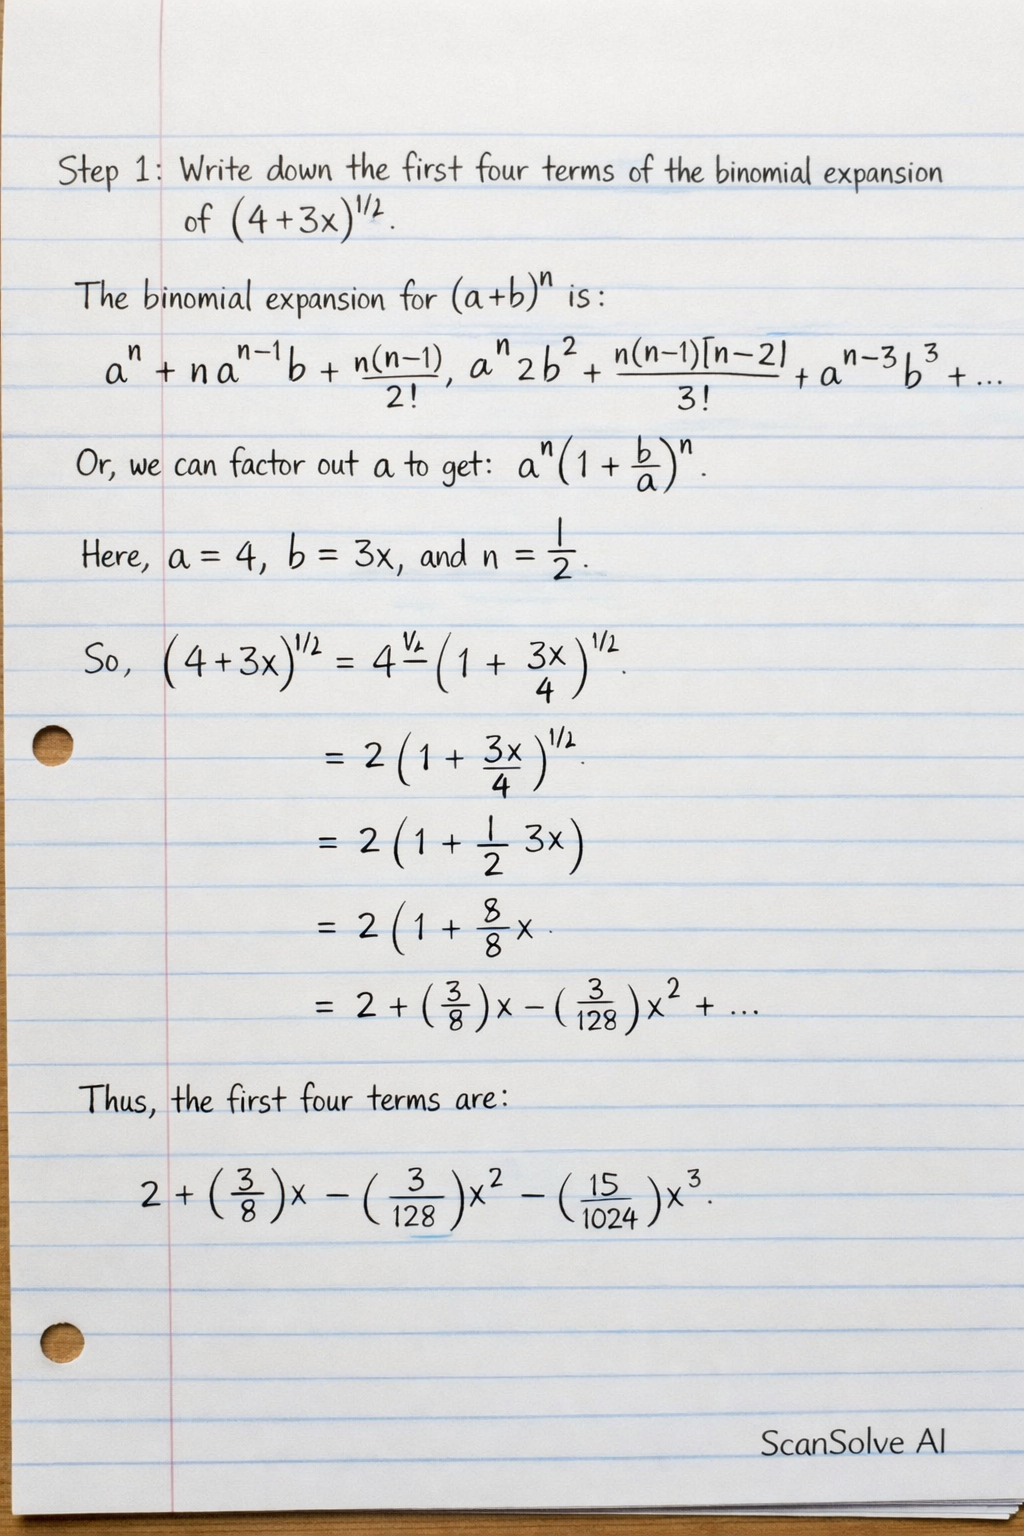 Step 1: Write down the first four terms of the binomial expansion
of (4+3x)^1/2.
The binomial expansion for (a+b)^n is:
a^n + na^n-1 b + n(n-1)/2!, a^n 2b^2 + n(n-1)[n-2]/3! + a^n-3 b^3 + ...
Or, we can factor out a to get: a^n(1 + b/a)^n.
Here, a = 4, b = 3x, and n = 1/2.
So, (4+3x)^1/2 = 4^1/2 (1 + 3x/4)^1/2.
= 2(1 + 3x/4)^1/2.
= 2(1 + 1/2 3x)
= 2(1 + 8/8 x.
= 2 + (3/8)x - (3/128)x^2 + ...
Thus, the first four terms are:
2 + (3/8)x - (3/128)x^2 - (15/1024)x^3.
ScanSolve AI